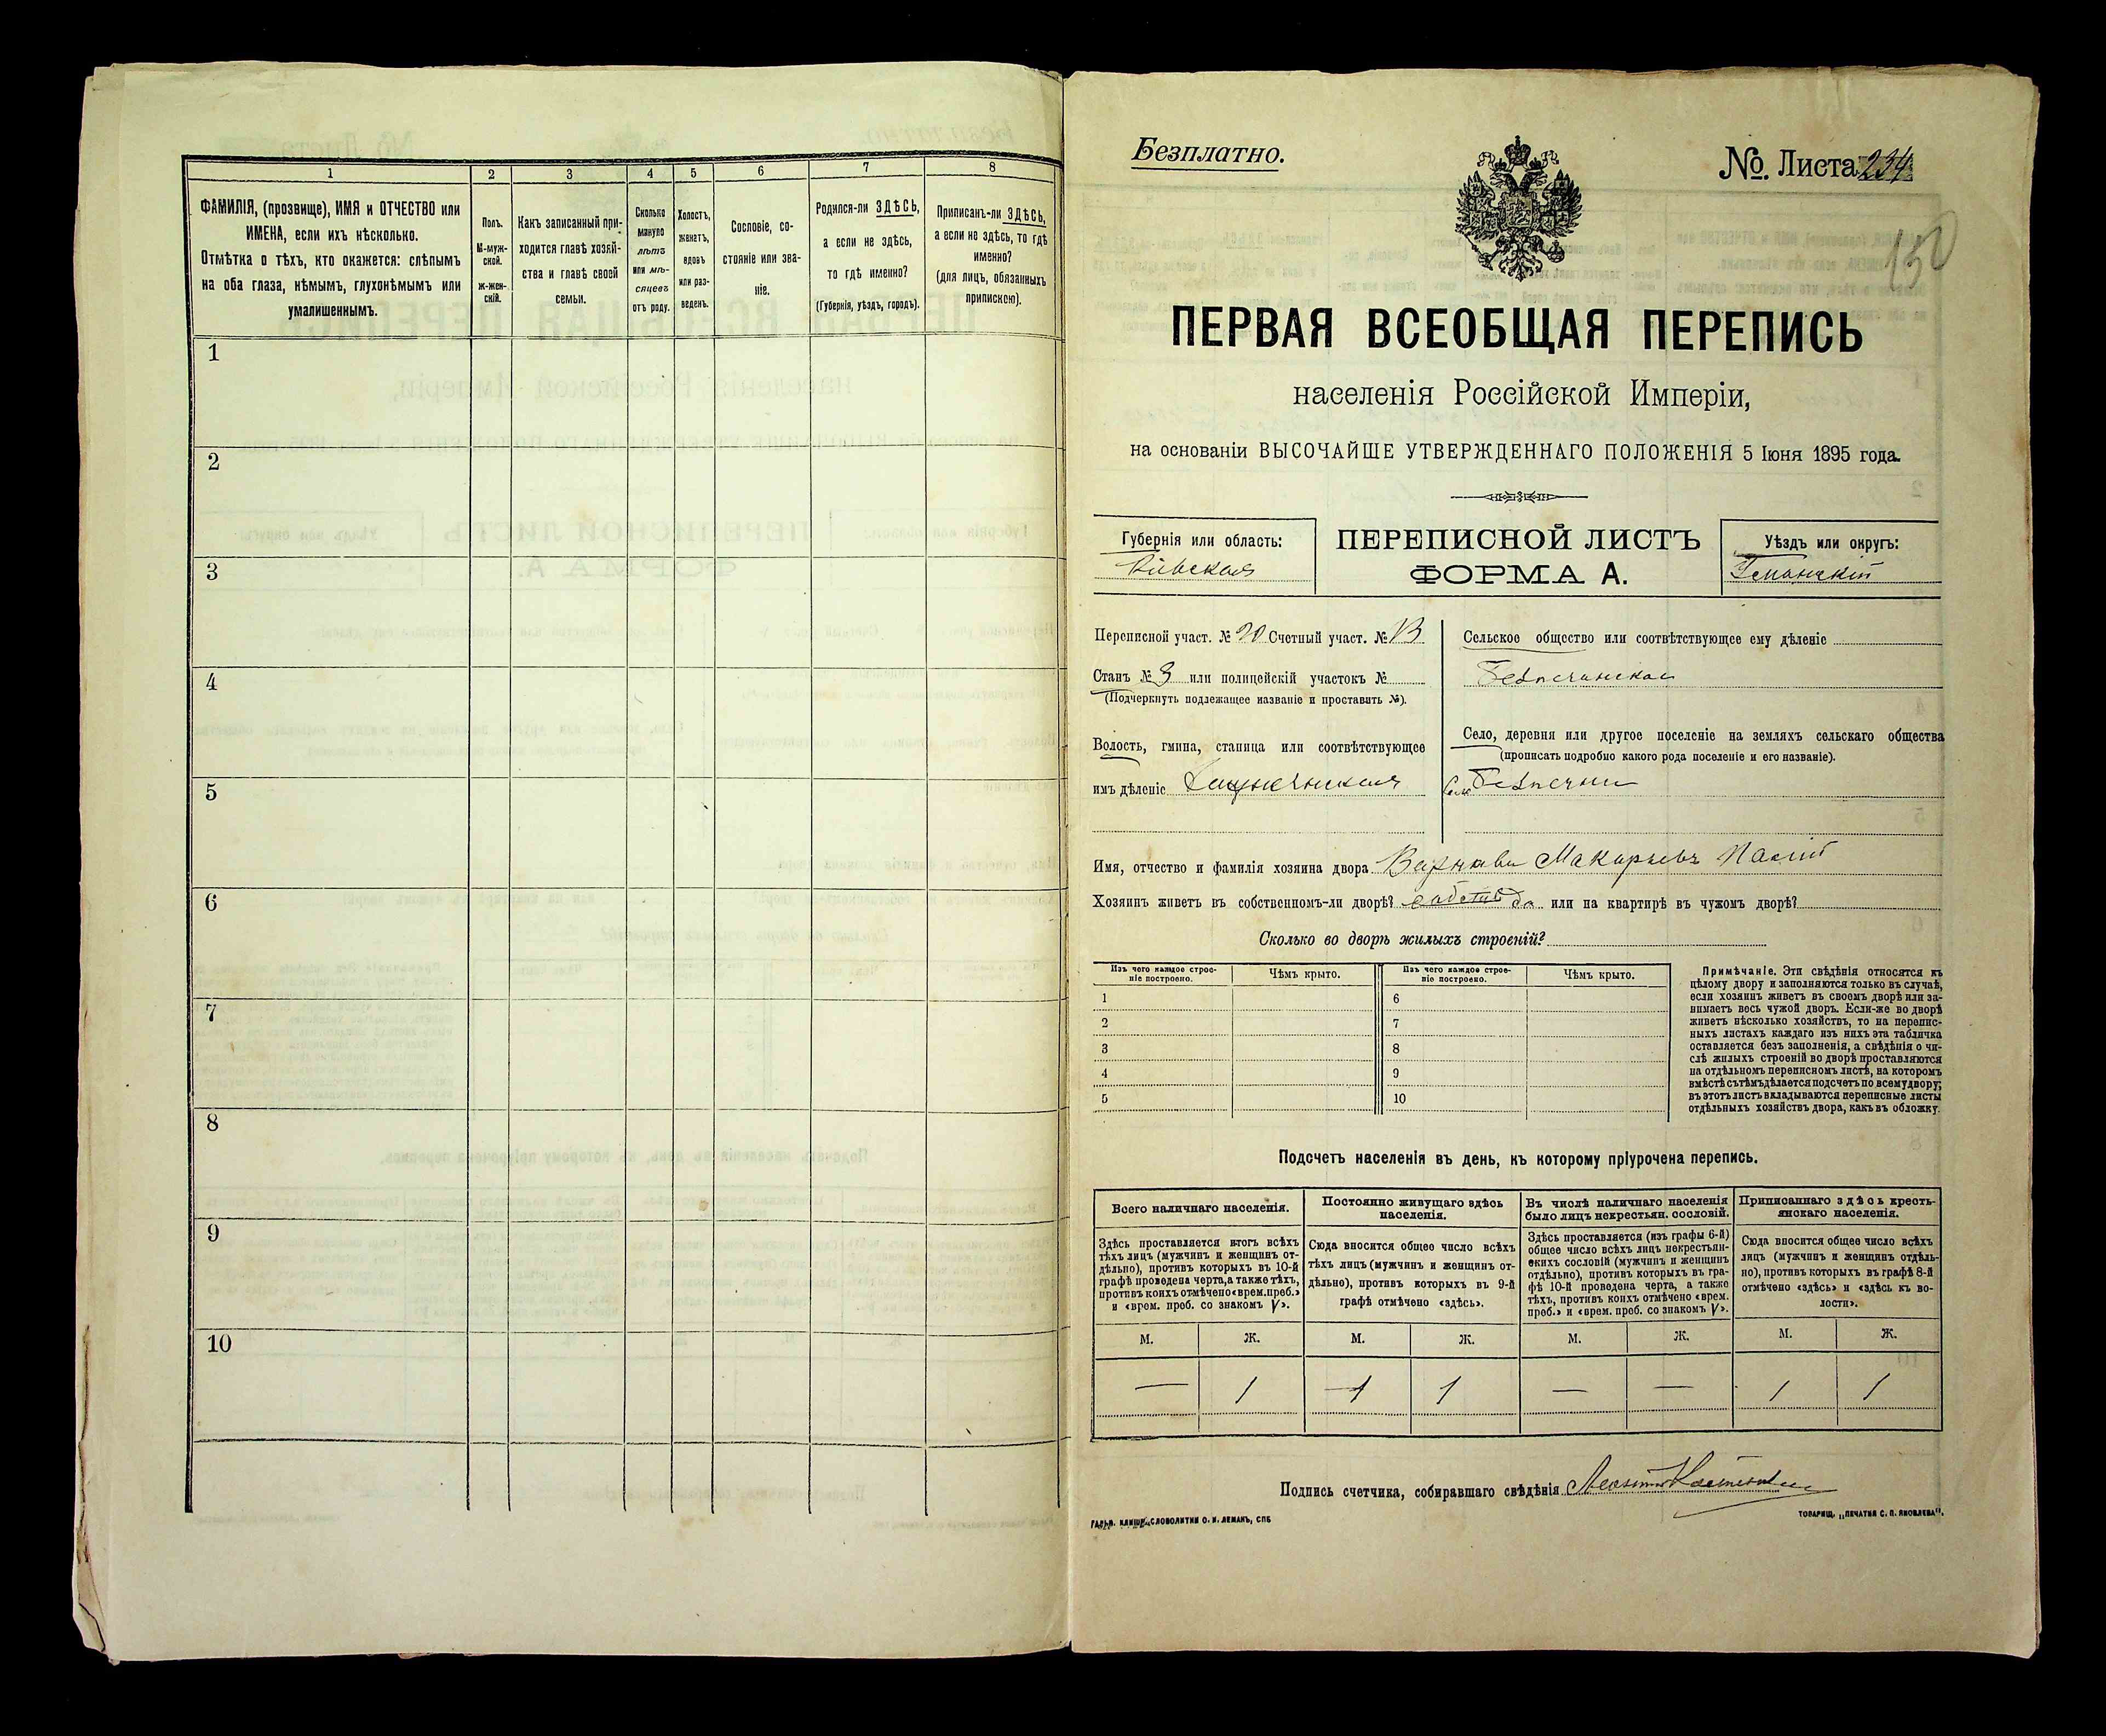 1 2 3 4 5 6 7 8
ФАМИЛІЯ, (прозвище), ИМЯ и ОТЧЕСТВО или
ИМЕНА, если ихъ нѣсколько.
Отмѣтка о тѣхъ, кто окажется: слѣпымъ
на оба глаза, нѣмымъ, глухонѣмымъ или
умалишеннымъ.
Полъ.
М-муж-
ской.
Ж-жен-
скій.
Какъ записанный при-
ходится главѣ хозяй-
ства и главѣ своей
семьи.
Сколько
минуло
лѣтъ
или мѣ-
сяцевъ
отъ роду.
Холостъ,
женатъ,
вдовъ
или раз-
веденъ.
Сословіе, со-
стояніе или зва-
ніе.
Родился-ли ЗДѢСЬ,
а если не здѣсь,
то гдѣ именно?
(Губернія, уѣздъ, городъ).
Приписанъ-ли ЗДѢСЬ,
а если не здѣсь, то гдѣ
именно?
(для лицъ, обязанныхъ
припискою).
1
2
3
4
5
6
7
8
9
10
Безплатно.
№. Листа 234
150
ПЕРВАЯ ВСЕОБЩАЯ ПЕРЕПИСЬ
населенія Россійской Имперіи,
на основаніи ВЫСОЧАЙШЕ УТВЕРЖДЕННАГО ПОЛОЖЕНІЯ 5 Іюня 1895 года.
Губернія или область:
Кіевская
ПЕРЕПИСНОЙ ЛИСТЪ
ФОРМА А.
Уѣздъ или округъ:
Уманскій
Переписной участ. № 20 Счетный участ. № 13
Станъ № 3 или полицейскій участокъ №
(Подчеркнуть подлежащее названіе и проставить №).
Волость, гмина, станица или соотвѣтствующее
имъ дѣленіе
Сельское общество или соотвѣтствующее ему дѣленіе
Безпечанское
Село, деревня или другое поселеніе на земляхъ сельскаго общества
(прописать подробно какого рода поселеніе и его названіе).
Село Безпечни
Имя, отчество и фамилія хозяина двора Варнава Макарьевъ Пасій
Хозяинъ живетъ въ собственномъ-ли дворѣ? да или на квартирѣ въ чужомъ дворѣ?
Сколько во дворѣ жилыхъ строеній?
Изъ чего каждое строе-
ніе построено.
Чѣмъ крыто.
Изъ чего каждое строе-
ніе построено.
Чѣмъ крыто.
1 6
2 7
3 8
4 9
5 10
Примѣчаніе. Эти свѣдѣнія относятся къ
цѣлому двору и заполняются только въ случаѣ,
если хозяинъ живетъ въ своемъ дворѣ или за-
нимаетъ весь чужой дворъ. Если-же во дворѣ
живетъ нѣсколько хозяйствъ, то на перепис-
ныхъ листахъ каждаго изъ нихъ эта табличка
оставляется безъ заполненія, а свѣдѣнія о чи-
слѣ жилыхъ строеній во дворѣ проставляются
на отдѣльномъ переписномъ листѣ, на которомъ
вмѣстѣ съ тѣмъ дѣлается подсчетъ по всему двору;
въ этотъ листъ вкладываются переписные листы
отдѣльныхъ хозяйствъ двора, какъ въ обложку.
Подсчетъ населенія въ день, къ которому пріурочена перепись.
Всего наличнаго населенія.
Здѣсь проставляется итогъ всѣхъ
тѣхъ лицъ (мужчинъ и женщинъ от-
дѣльно), противъ которыхъ въ 10-й
графѣ проведена черта, а также тѣхъ,
противъ коихъ отмѣчено «врем. преб.»
и «врем. проб. со знакомъ V».
Постоянно живущаго здѣсь
населенія.
Сюда вносится общее число всѣхъ
тѣхъ лицъ (мужчинъ и женщинъ от-
дѣльно), противъ которыхъ въ 9-й
графѣ отмѣчено «здѣсь».
Въ числѣ наличнаго населенія
было лицъ некрестьян. сословій.
Здѣсь проставляется (изъ графы 6-й)
общее число всѣхъ лицъ некрестьян-
скихъ сословій (мужчинъ и женщинъ
отдѣльно), противъ которыхъ въ гра-
фѣ 10-й проведена черта, а также
тѣхъ, противъ коихъ отмѣчено «врем.
преб.» и «врем. проб. со знакомъ V».
Приписаннаго здѣсь кресть-
янскаго населенія.
Сюда вносится общее число всѣхъ
лицъ (мужчинъ и женщинъ отдѣль-
но), противъ которыхъ въ графѣ 8-й
отмѣчено «здѣсь» и «здѣсь къ во-
лости».
М. Ж. М. Ж. М. Ж. М. Ж.
— 1 1 1 — — 1 1
Подпись счетчика, собиравшаго свѣдѣнія
ГАЛЬВ. КЛИШЕ, СЛОВОЛИТНИ О. И. ЛЕМАНЪ, СПБ
ТОВАРИЩ. „ПЕЧАТНЯ С. П. ЯКОВЛЕВА".